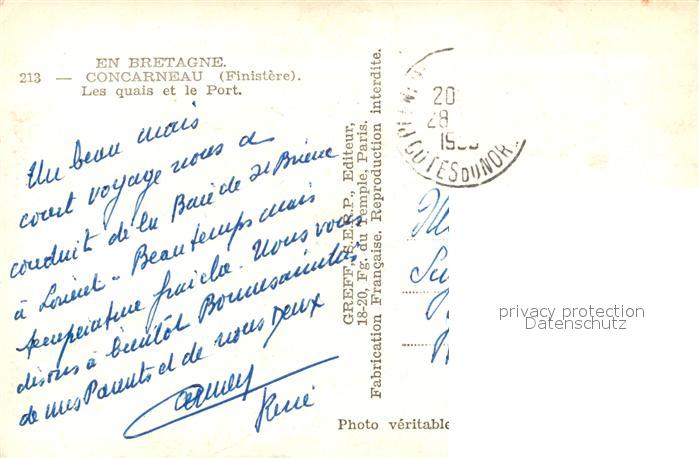 EN BRETAGNE.
213 — CONCARNEAU (Finistère).
Les quais et le Port.
Un beau mais
court voyage nous a
conduit de la Baie de St Brieuc
à Lorient. Beau temps mais
température fraîche. Nous vous
disons à bientôt Bonnes amitiés
de mes Parents et de nous Deux
René
GREFF, S.E.R.P., Editeur,
18-20, Fg. du Temple, Paris.
Fabrication Française. Reproduction interdite.
Photo véritable
20
28
COTES DU NOR
privacy protection
Datenschutz